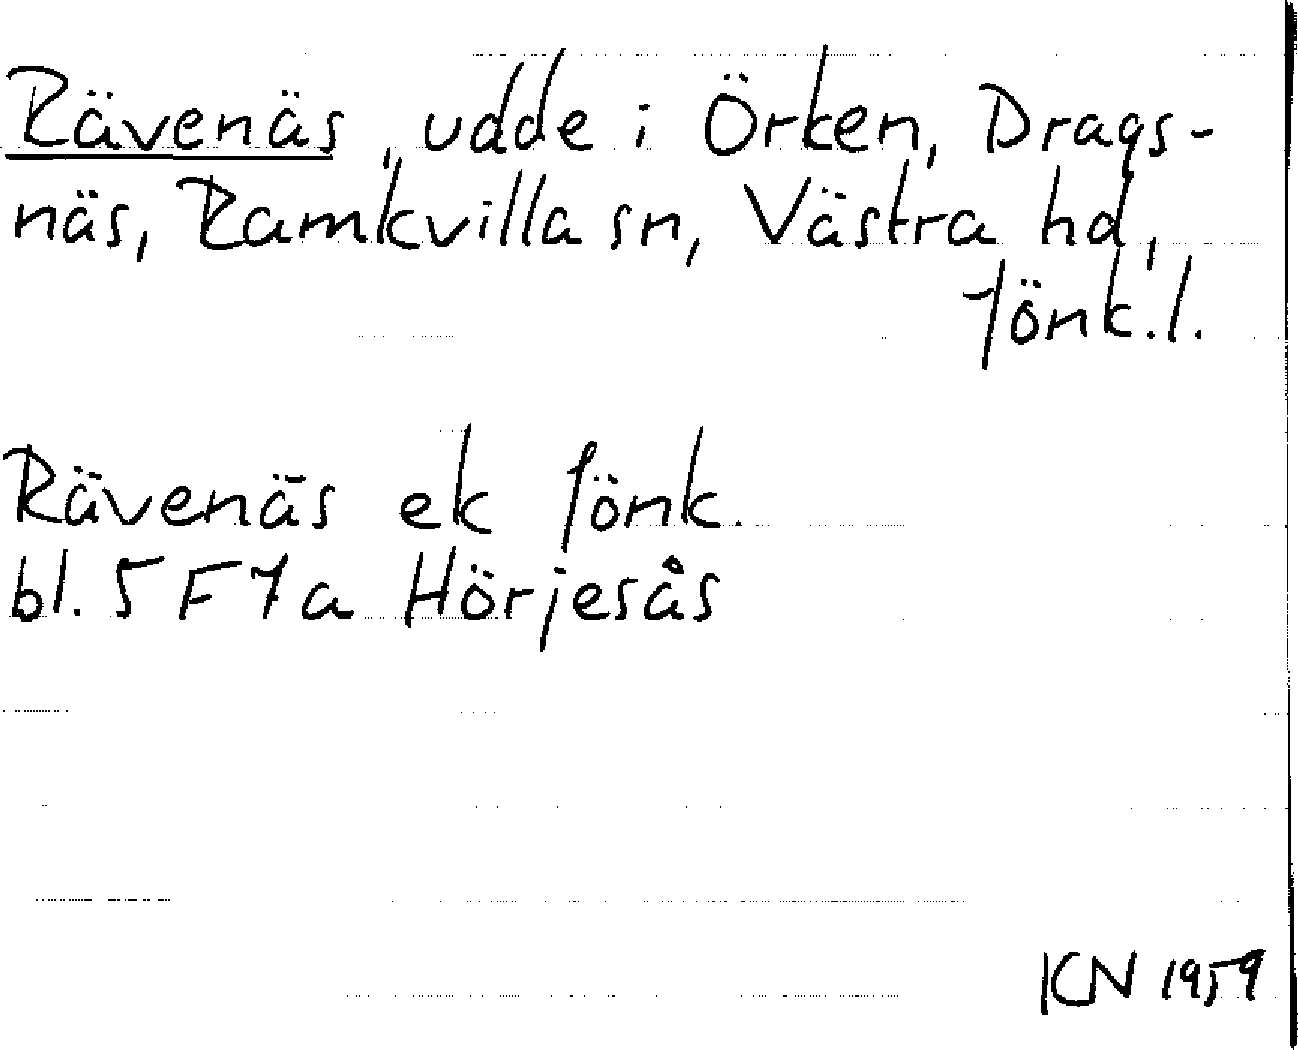 Rävenäs, udde i Örken, Drags-
näs, Ramkvilla sn, Västra hd,
Jönk.l.
Rävenäs ek Jönk.
bl. 5 F 7 a Hörjesås
KN 1959